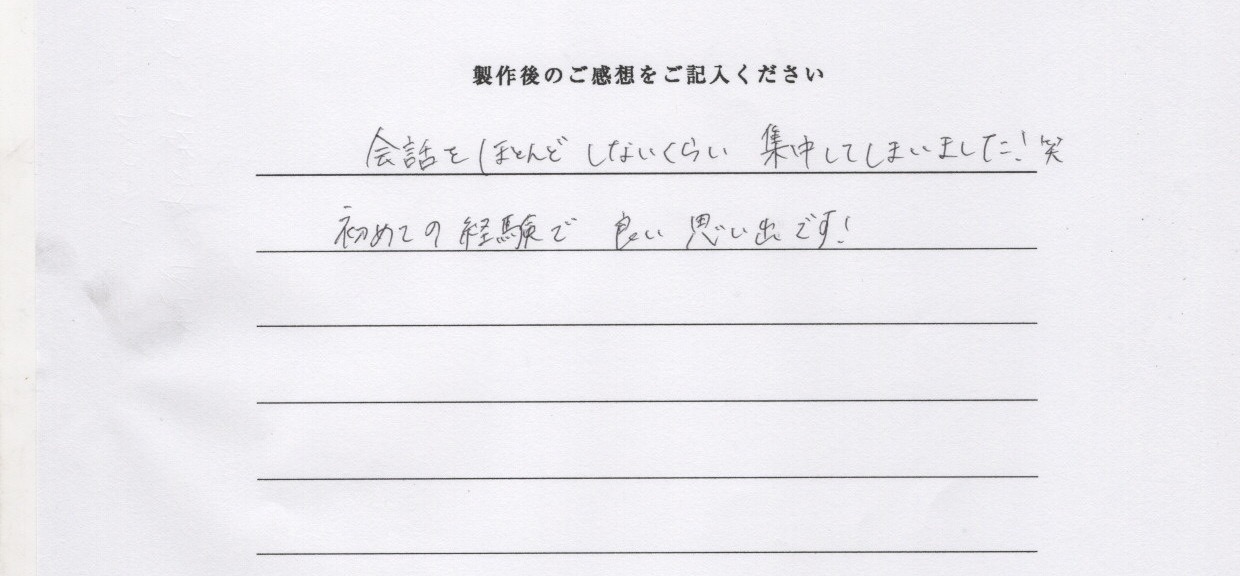 製作後のご感想をご記入ください
会話をほとんどしないくらい 集中してしまいました!笑
初めての経験で 良い思い出です!